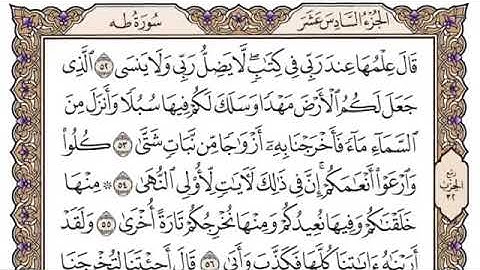 الجزء السادس عشر
سورة طه
قَالَ عِلْمُهَا عِندَ رَبِّي فِي كِتَٰبٍۖ لَّا يَضِلُّ رَبِّي وَلَا يَنسَى ٥٢ ٱلَّذِي
جَعَلَ لَكُمُ ٱلْأَرْضَ مَهْدًا وَسَلَكَ لَكُمْ فِيهَا سُبُلًا وَأَنزَلَ مِنَ
ٱلسَّمَآءِ مَآءً فَأَخْرَجْنَا بِهِۦٓ أَزْوَٰجًا مِّن نَّبَاتٍ شَتَّىٰ ٥٣ كُلُوا۟
وَٱرْعَوْا۟ أَنْعَٰمَكُمْۗ إِنَّ فِي ذَٰلِكَ لَأٓيَٰتٍ لِّأُو۟لِي ٱلنُّهَىٰ ٥٤ ۞ مِنْهَا
خَلَقْنَٰكُمْ وَفِيهَا نُعِيدُكُمْ وَمِنْهَا نُخْرِجُكُمْ تَارَةً أُخْرَىٰ ٥٥ وَلَقَدْ
أَرَيْنَٰهُ ءَايَٰتِنَا كُلَّهَا فَكَذَّبَ وَأَبَىٰ ٥٦ قَالَ أَجِئْتَنَا لِتُخْرِجَنَا
ربع
الحزب
٣٢